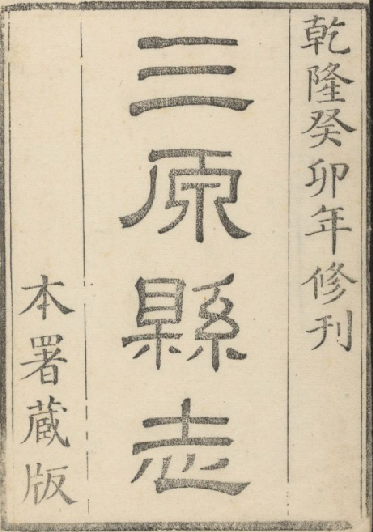 乾隆癸卯年修刊
三原縣志
本署蔵版